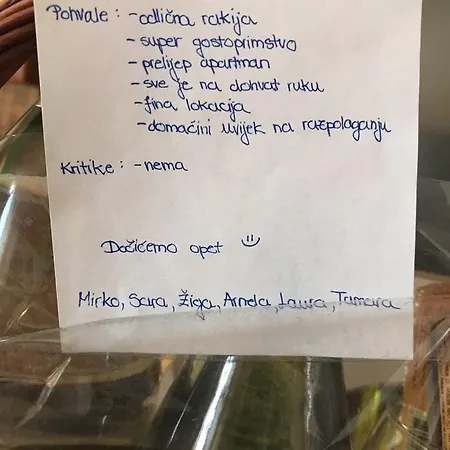 Pohvale : - odlična rakija
- super gostoprimstvo
- prelijep apartman
- sve je na dohvat ruku
- fina lokacija
- domaćini uvijek na razpolaganju
Kritike : - nema
Dožićemo opet :)
Mirko, Sara, Žiga, Arnela, Laura, Tamara